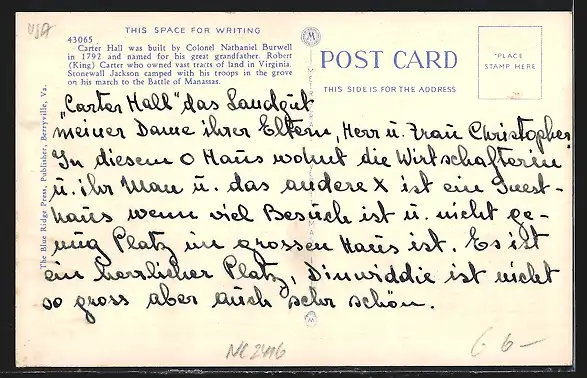 USA
THIS SPACE FOR WRITING
43065
Carter Hall was built by Colonel Nathaniel Burwell
in 1792 and named for his great grandfather, Robert
(King) Carter who owned vast tracts of land in Virginia.
Stonewall Jackson camped with his troops in the grove
on his march to the Battle of Manassas.
POST CARD
THIS SIDE IS FOR THE ADDRESS
PLACE
STAMP HERE
The Blue Ridge Press, Publisher, Berryville, Va.
"Carter Hall" das Landgut
meiner Dame ihrer Eltern, Herr u. Frau Christopher.
In diesem O Haus wohnt die Wirtschafterin
u. ihr Man u. das andere X ist ein Guest-
haus wenn viel Besuch ist u. nicht ge-
nug Platz im grossen Haus ist. Es ist
ein herrlicher Platz, Dinwiddie ist nicht
so gross aber auch sehr schön.
NC 2416
6-